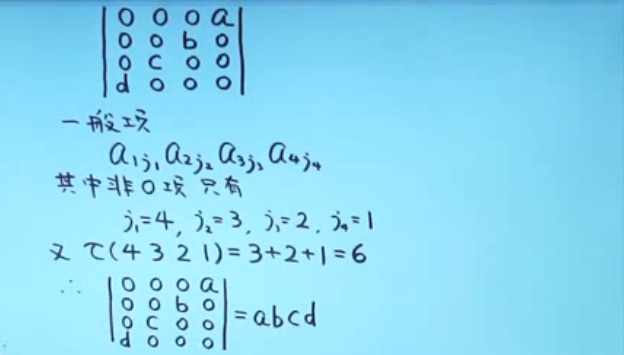 |0 0 0 a|
|0 0 b 0|
|0 c 0 0|
|d 0 0 0|
一般项
a₁ⱼ₁ a₂ⱼ₂ a₃ⱼ₃ a₄ⱼ₄
其中非0项 只有
j₁=4, j₂=3, j₃=2, j₄=1
又 τ(4 3 2 1)=3+2+1=6
∴ |0 0 0 a|
|0 0 b 0|
|0 c 0 0| =abcd
|d 0 0 0|